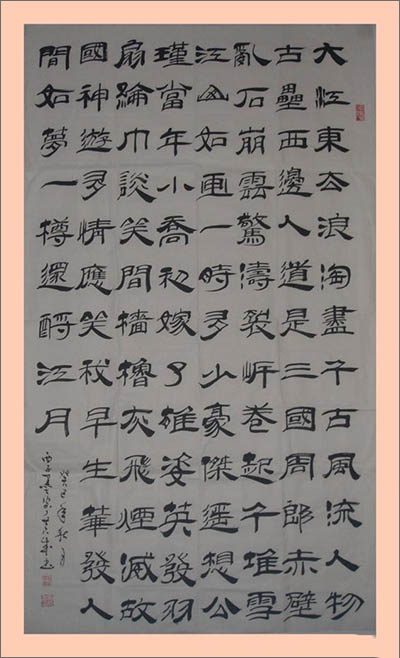 大江東去浪淘盡千古風流人物
古壘西邊人道是三國周郎赤壁
亂石崩雲驚濤裂岍卷起千堆雪
江山如画一時多少豪傑遥想公
瑾當年小喬初嫁了雄姿英發羽
扇綸巾談笑間檣櫓灰飛煙滅故
國神遊多情應笑我早生華發人
間如夢一樽還酹江月
癸巳年秋月